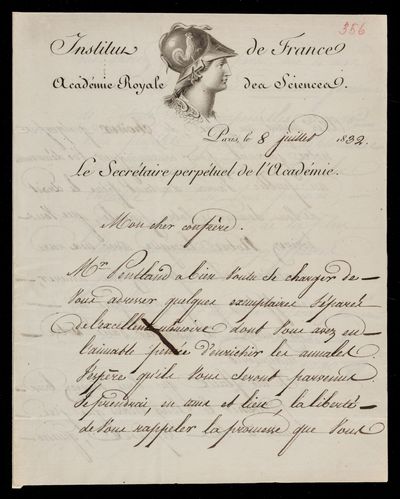 356
Institut de France
Académie Royale des Sciences.
Paris, le 8 juillet 1832.
Le Secrétaire perpétuel de l'Académie.
Mon cher confrère.
Mr. Pentland a bien voulu se charger de
vous adresser quelques exemplaires séparés
de l'excellent mémoire dont vous avez eu
l'aimable pensée d'enrichir les annales
J'espère qu'ils vous seront parvenus
Je prendrai, en tems et lieu, la liberté
de vous rappeler la promesse que vous